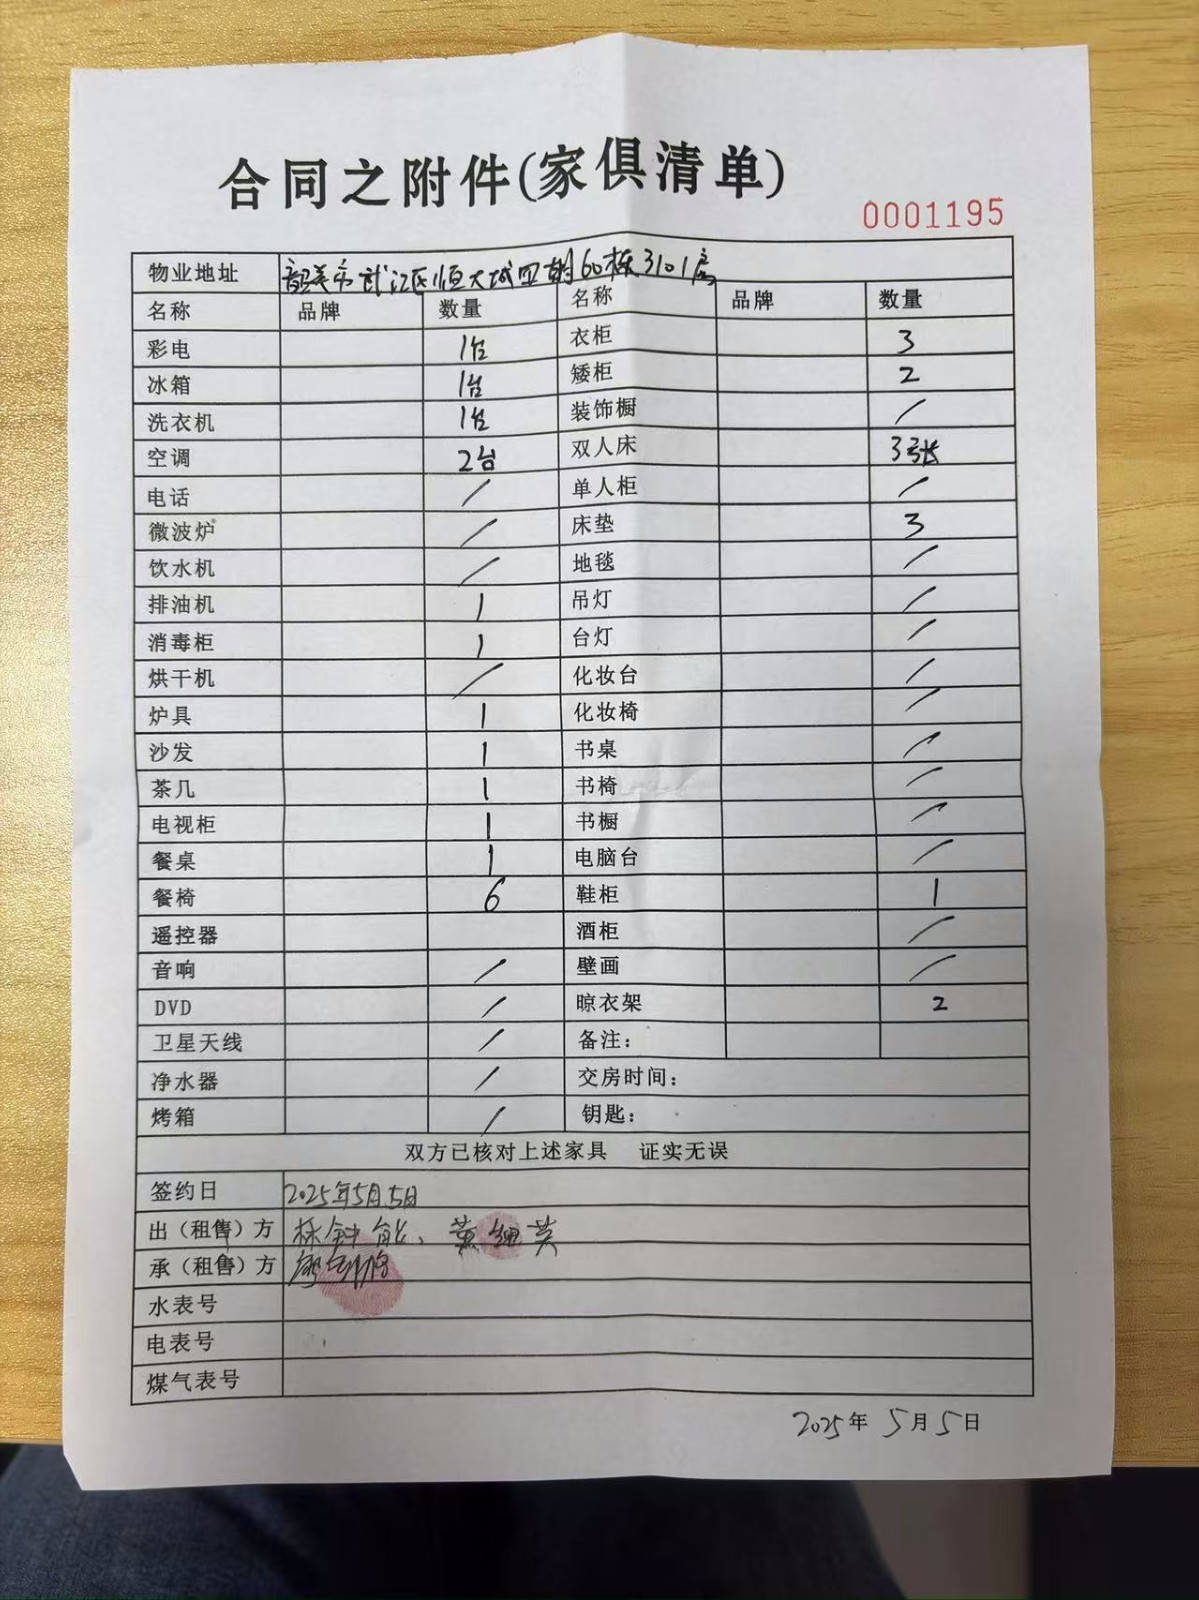 合同之附件(家俱清单)
0001195
物业地址 韶关市武江区恒大城四期60栋3101房
名称 品牌 数量 名称 品牌 数量
彩电 1台 衣柜 3
冰箱 1台 矮柜 2
洗衣机 1台 装饰橱 /
空调 2台 双人床 3张
电话 / 单人柜 /
微波炉 / 床垫 3
饮水机 / 地毯 /
排油机 1 吊灯 /
消毒柜 1 台灯 /
烘干机 / 化妆台 /
炉具 1 化妆椅 /
沙发 1 书桌 /
茶几 1 书椅 /
电视柜 1 书橱 /
餐桌 1 电脑台 /
餐椅 6 鞋柜 1
遥控器 酒柜 /
音响 / 壁画 /
DVD / 晾衣架 2
卫星天线 / 备注：
净水器 / 交房时间：
烤箱 / 钥匙：
双方已核对上述家具 证实无误
签约日 2025年5月5日
出（租售）方 钟能、黄细英
承（租售）方
水表号
电表号
煤气表号
2025年5月5日